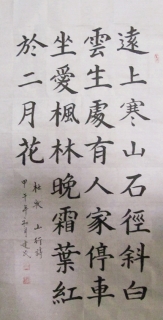 遠上寒山石徑斜白
雲生處有人家停車
坐愛楓林晚霜葉紅
於二月花
杜牧 山行詩